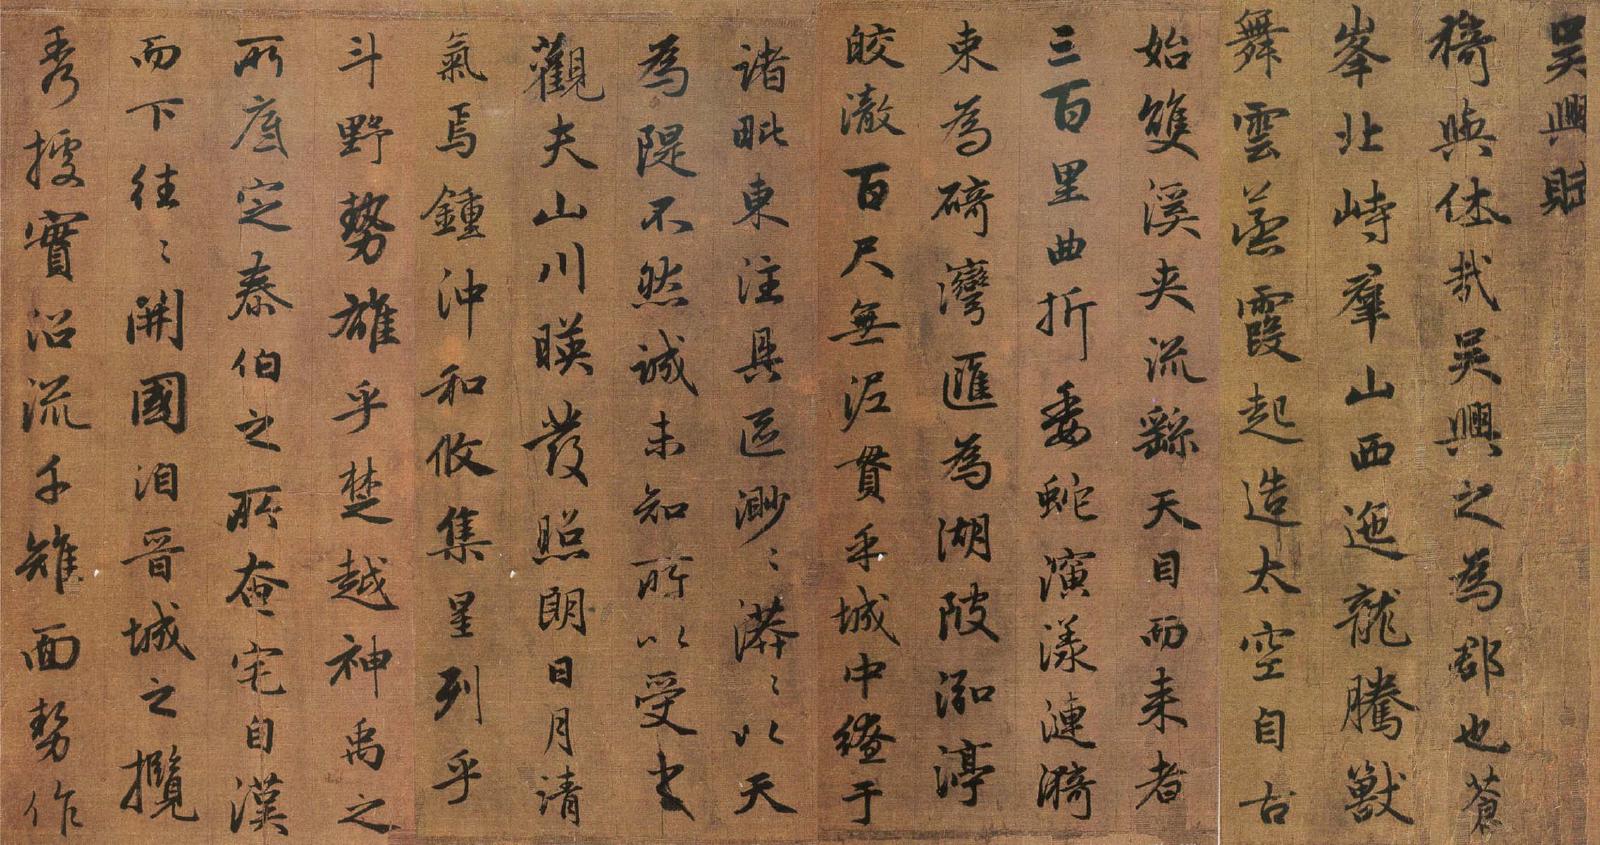 吳興賦
猗與休哉吳興之為郡也蒼
峯北峙羣山西迤龍騰獸
舞雲蒸霞起造太空自古
始雙溪夾流繇天目而来者
三百里曲折委蛇演漾漣漪
束為碕灣匯為湖陂泓渟
皎澈百尺無泥貫乎城中繚于
諸毗東注具區渺〻漭〻以天
為隄不然誠未知所以受之
觀夫山川暎發照朗日月清
氣焉鍾沖和攸集星列乎
斗野勢雄乎楚越神禹之
所底定泰伯之所奄宅自漢
而下往〻開國洎晋城之攬
秀據實沿流千雉面勢作